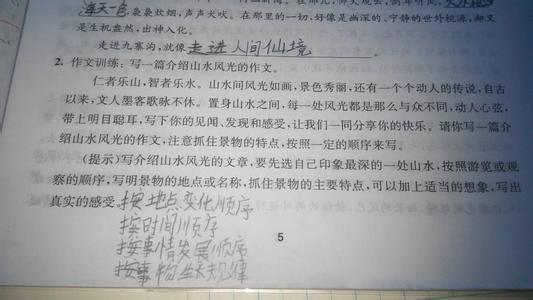 海天一色,袅袅炊烟,声声犬吠。在那里的一切,好像是幽深的、宁静的世外桃源,却又
是生机盎然,出神入化。
走进九寨沟,就像走进人间仙境。
2. 作文训练:写一篇介绍山水风光的作文。
仁者乐山,智者乐水。山水间风光如画,景色秀丽,还有一个个动人的传说,自古
以来,文人墨客歌咏不休。置身山水之间,每一处风光都是那么与众不同,动人心弦,
带上明目聪耳,写下你的见闻、发现和感受,让我们一同分享你的快乐。请你写一篇介
绍山水风光的作文,注意抓住景物的特点,按照一定的顺序来写。
(提示)写介绍山水风光的文章,要先选自己印象最深的一处山水,按照游览或观
察的顺序,写明景物的地点或名称,抓住景物的主要特点,可以加上适当的想象,写出
真实的感受。按地点变化顺序
按时间顺序
按事情发展顺序
按事物生长规律
5